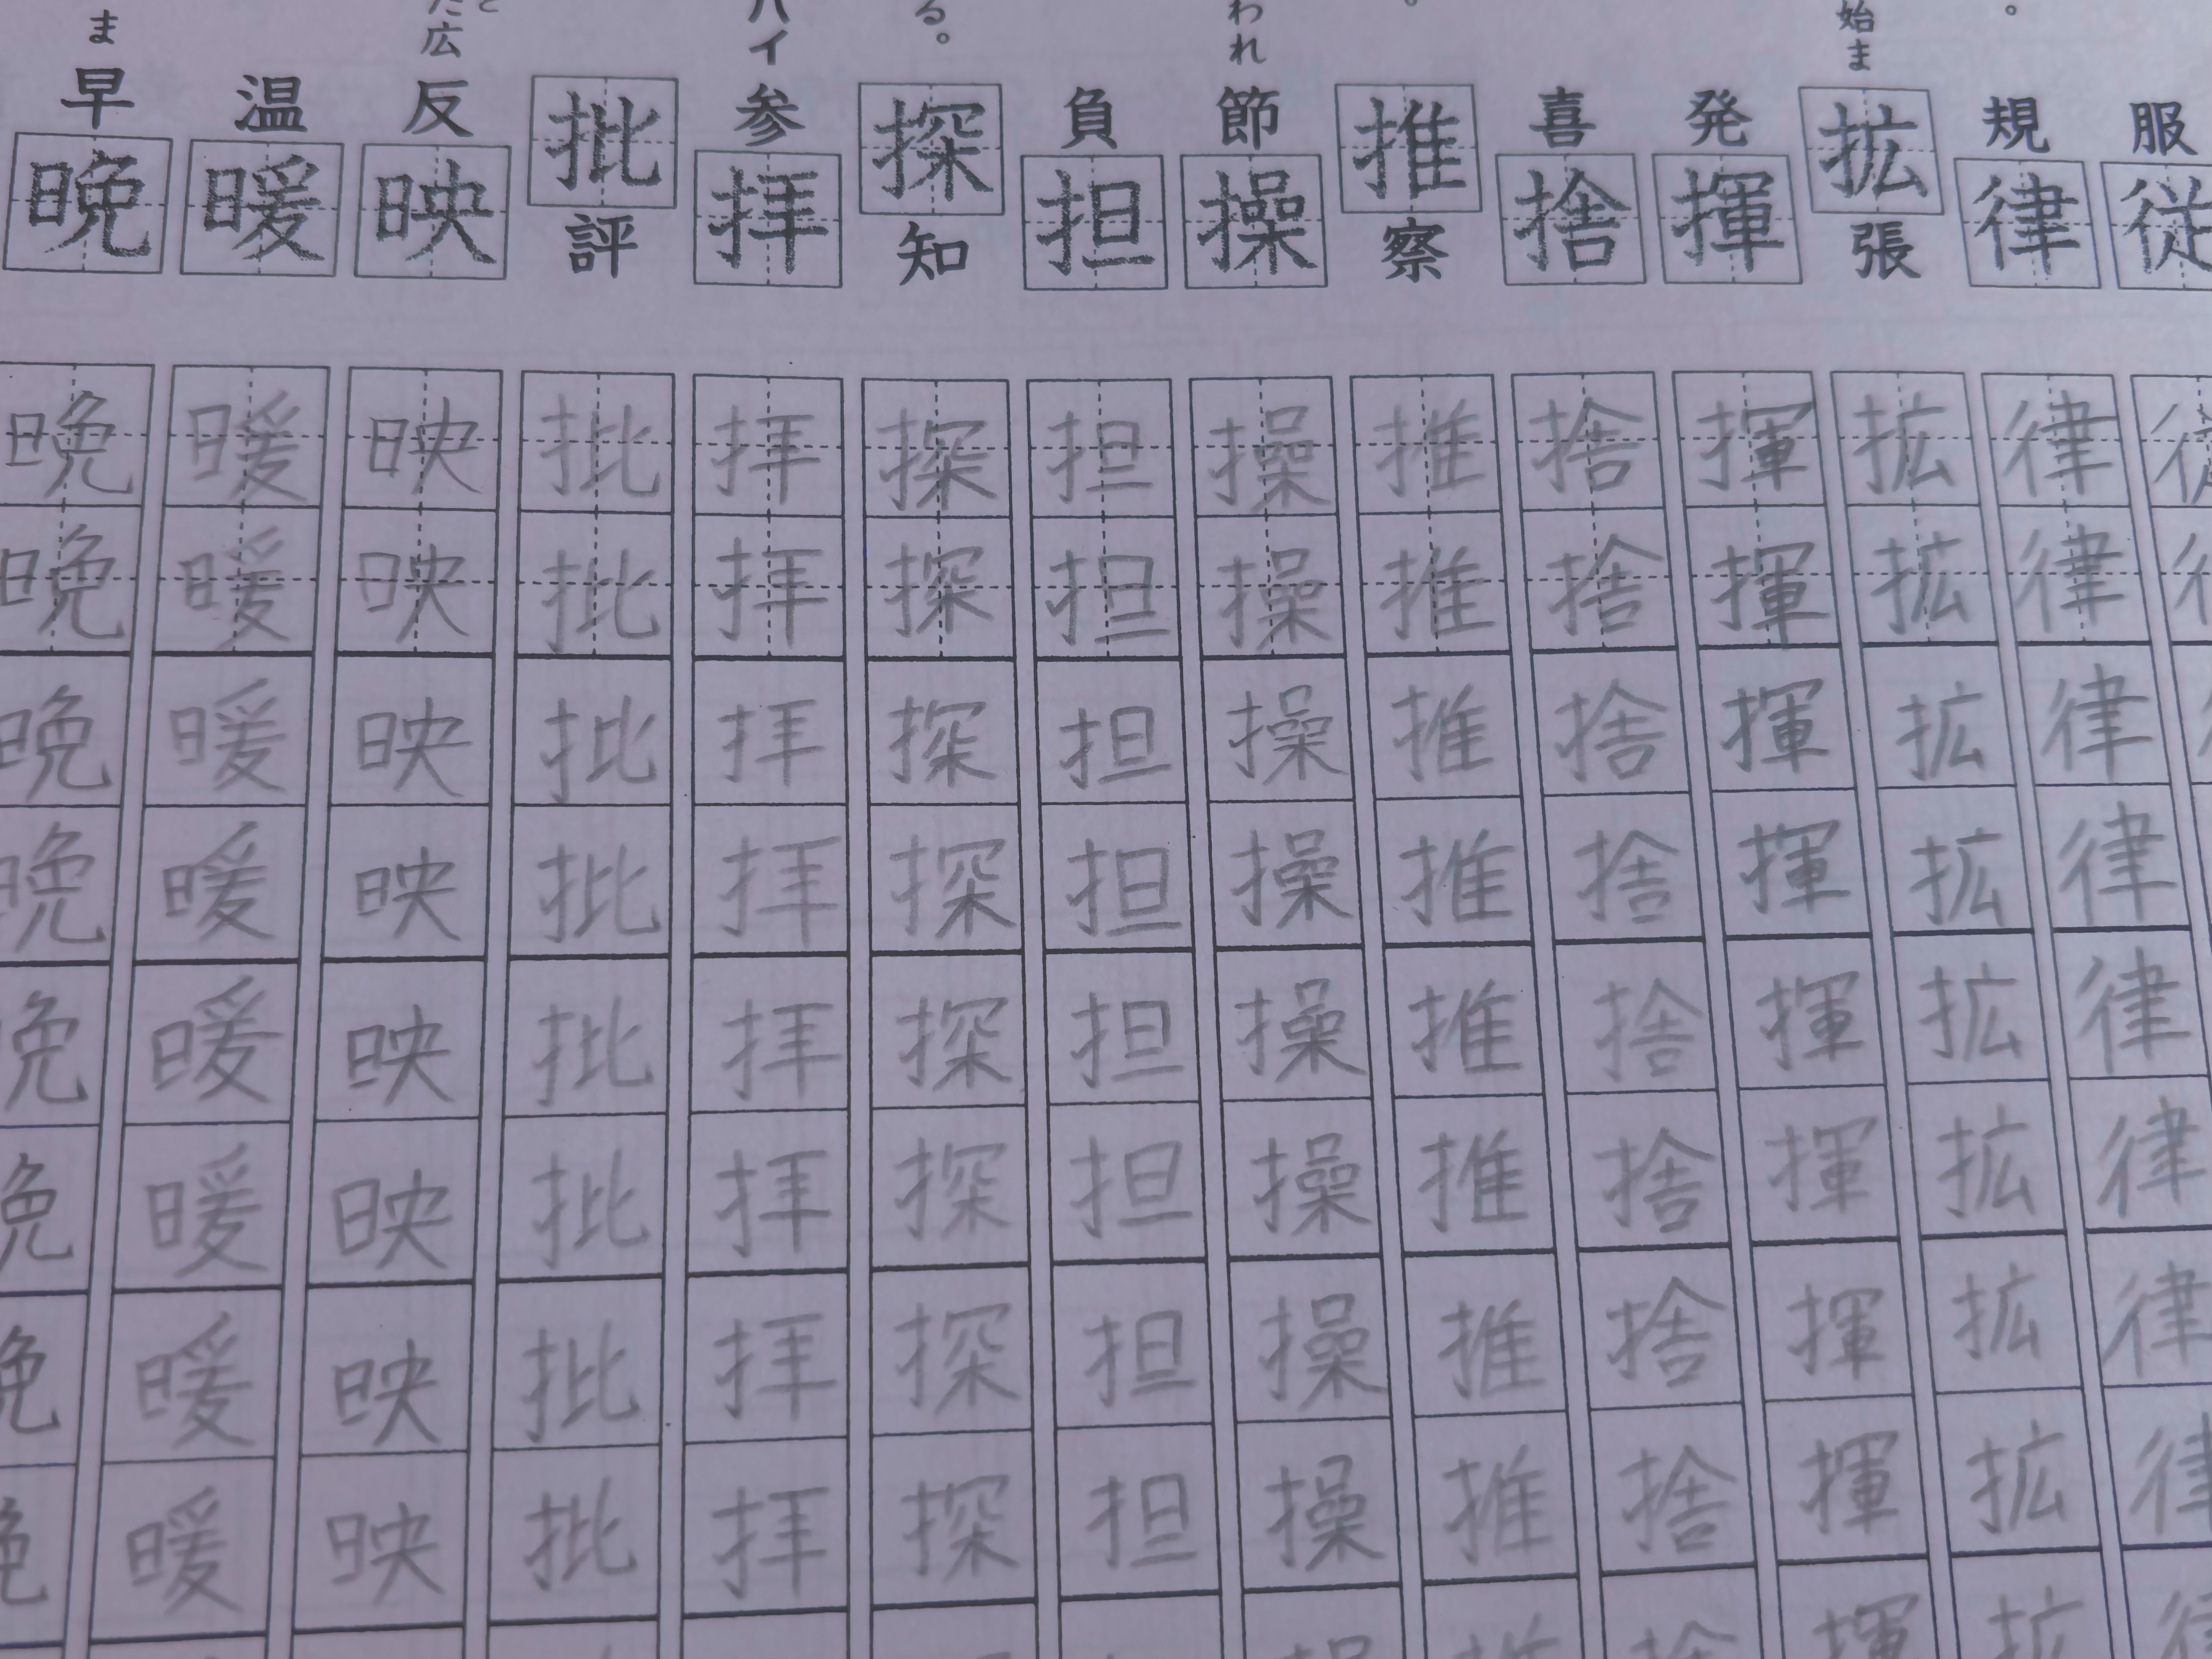 服従
。
規律
律律律律律律律律
始ま
拡張
拡拡拡拡拡拡拡拡拡
発揮
揮揮揮揮揮揮揮揮揮
喜捨
捨捨捨捨捨捨捨捨
。
推察
推推推推推推推推
われ
節操
操操操操操操操操
負担
担担担担担担担担
る。
探知
探探探探探探探探
ハイ
参拝
拝拝拝拝拝拝拝拝
批評
批批批批批批批批
と
た広
反映
映映映映映映映映
温暖
暖暖暖暖暖暖暖暖
ま
早晩
晩晩晩晩晩晩晩晩